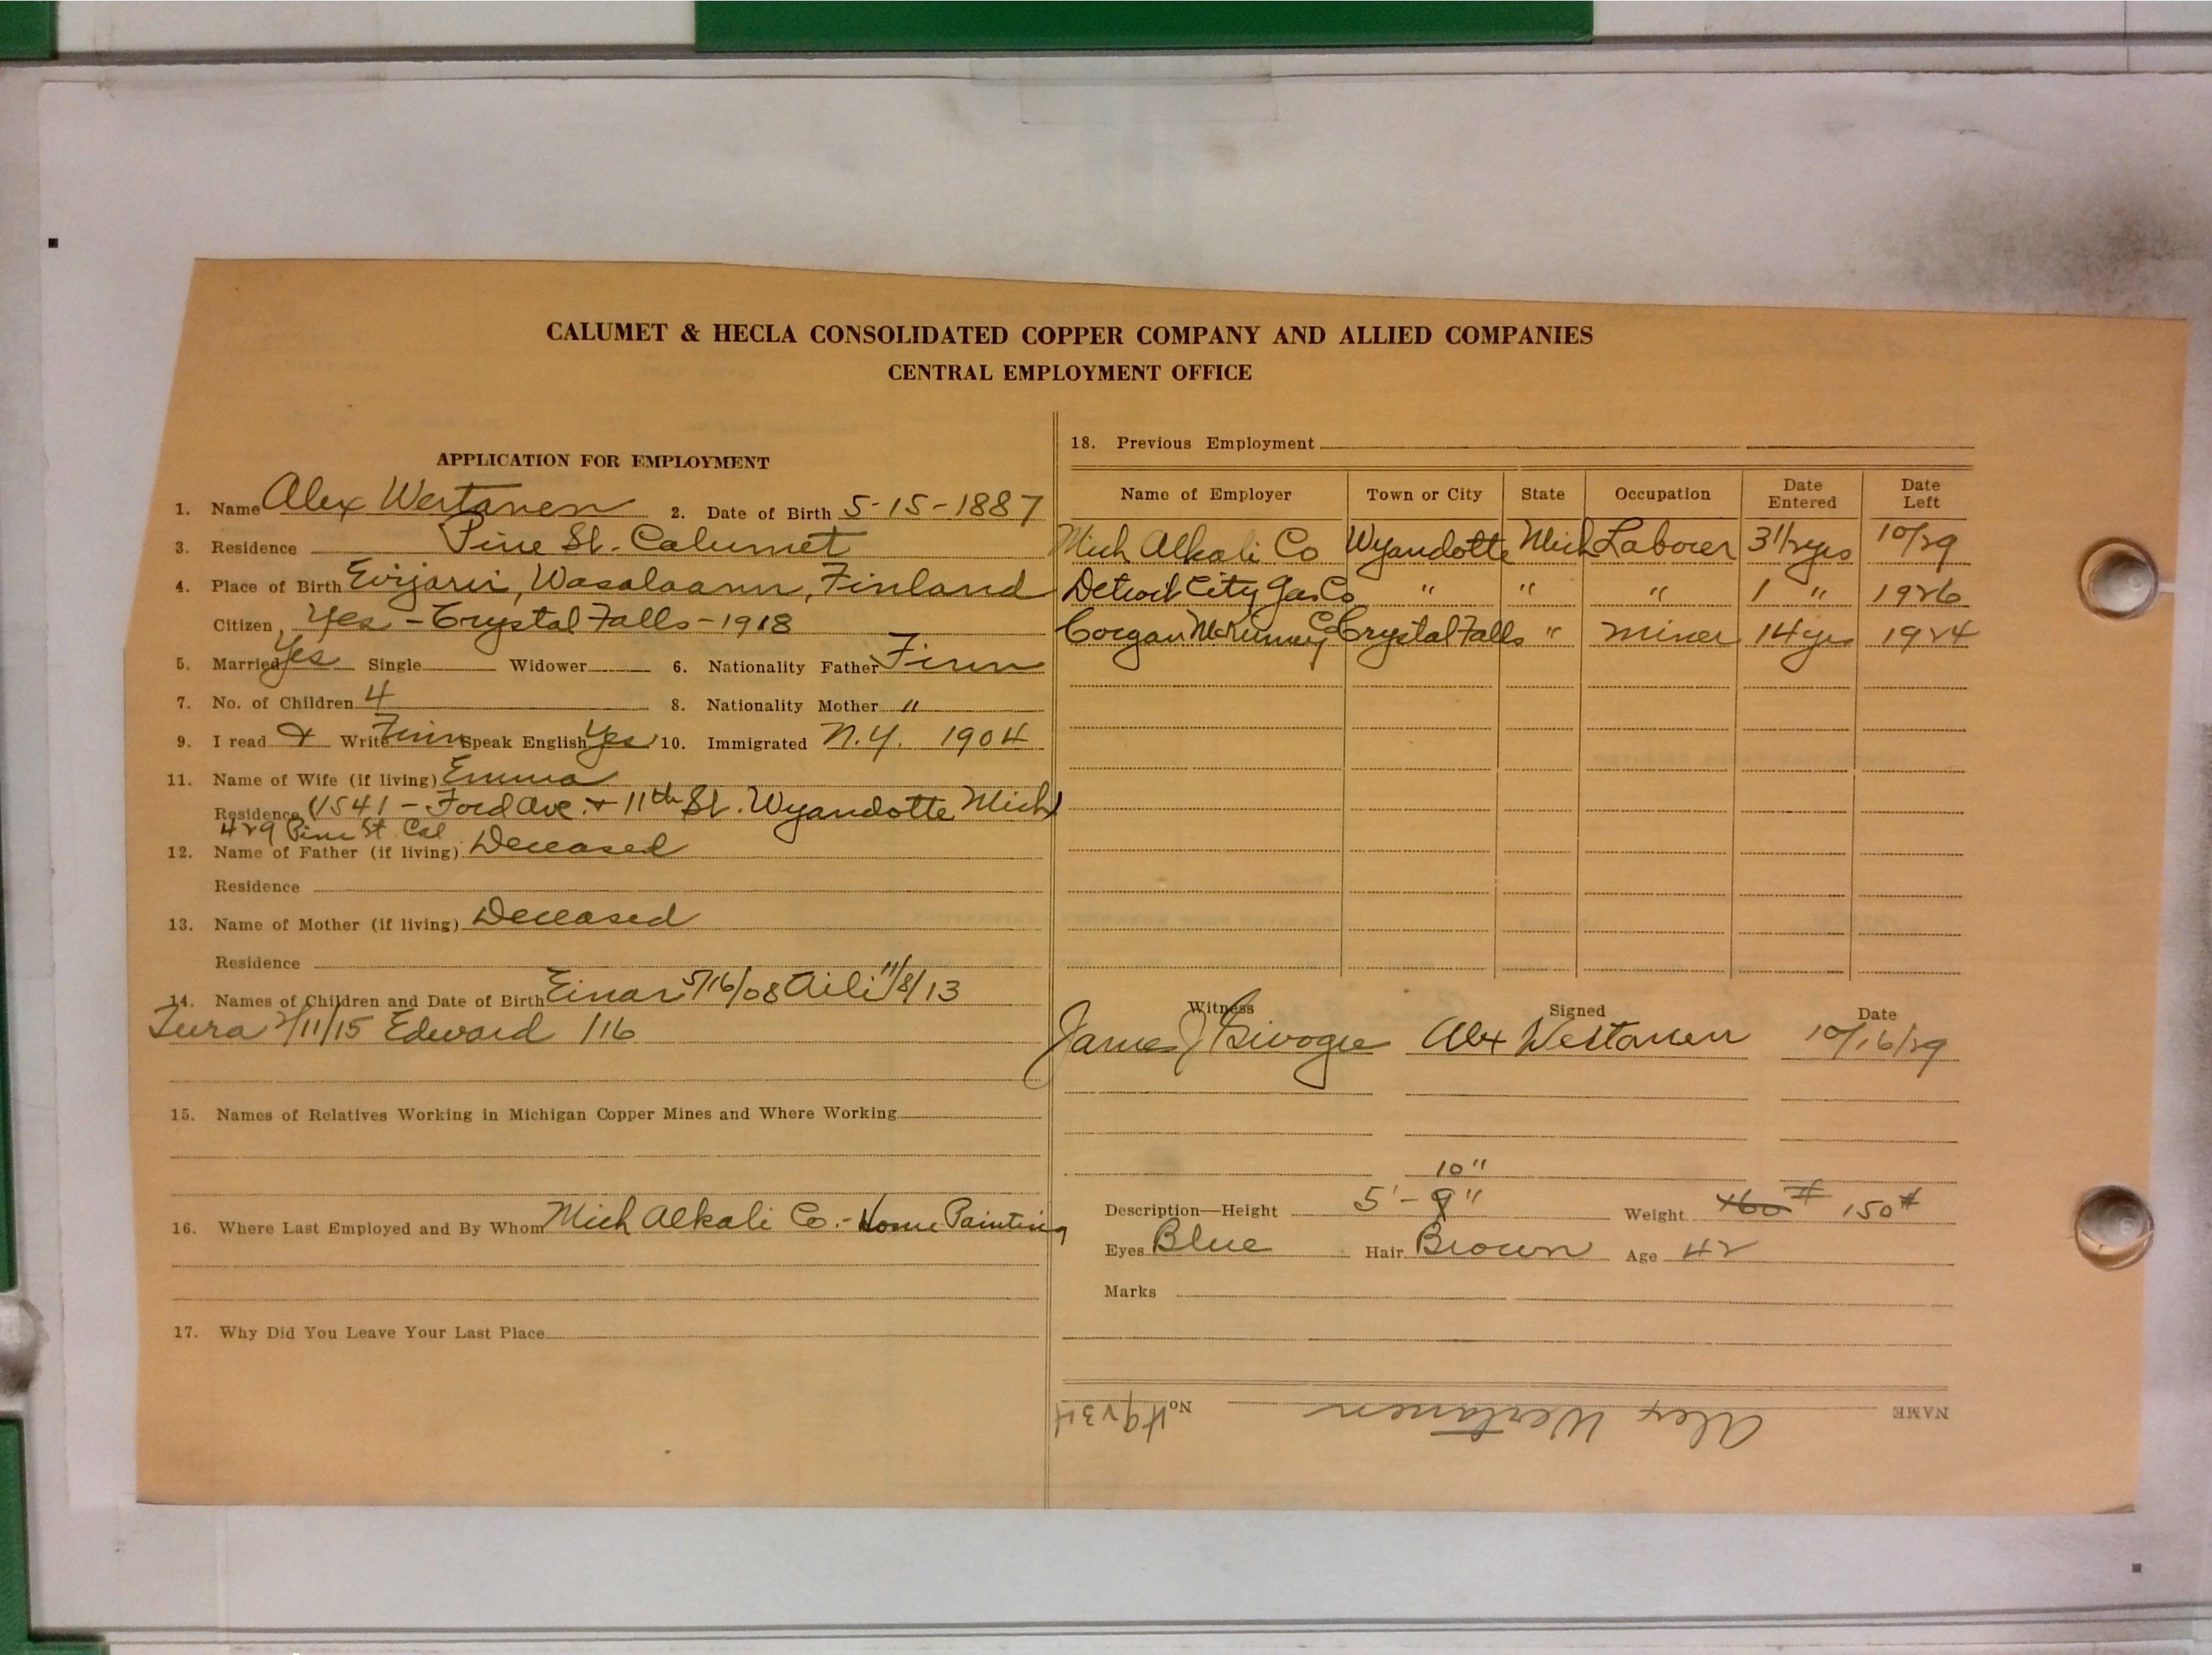 CALUMET & HECLA CONSOLIDATED COPPER COMPANY AND ALLIED COMPANIES
CENTRAL EMPLOYMENT OFFICE
APPLICATION FOR EMPLOYMENT
1. Name Alex Wertanen 2. Date of Birth 5-15-1887
3. Residence Pine St. Calumet
4. Place of Birth Evijarvi, Wasalaann, Finland
Citizen Yes - Crystal Falls - 1918
5. Married Yes Single Widower 6. Nationality Father Finn
7. No. of Children 4 8. Nationality Mother "
9. I read & Write Finn Speak English Yes 10. Immigrated N.Y. 1904
11. Name of Wife (if living) Emma
Residence (1541 - Ford Ave. + 11th St. Wyandotte Mich)
429 Pine St Cal
12. Name of Father (if living) Deceased
Residence
13. Name of Mother (if living) Deceased
Residence
14. Names of Children and Date of Birth Einar 5/16/08 Aili 11/8/13
2/11/15 Edward /16
15. Names of Relatives Working in Michigan Copper Mines and Where Working
16. Where Last Employed and By Whom Mich Alkali Co. - Home Painting
17. Why Did You Leave Your Last Place
18. Previous Employment
Name of Employer Town or City State Occupation Date Entered Date Left
Mich Alkali Co Wyandotte Mich Laborer 3 1/2 yrs 10/29
Detroit City Gas Co " " " 1 " 1926
Corgan McKinney Co Crystal Falls " Miner 14 yrs 1924
Witness Signed Date
James J Alex Westanen 10/16/29
10"
Description—Height 5'-9" Weight 160# 150#
Eyes Blue Hair Brown Age 42
Marks
NAME Alex Wertanen No. 49234